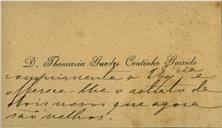 D. Thomazia Guedes Coutinho Garrido
comprimenta a V. Ex.cia e
offerece-lhe o retrato de
dois novos que agora
são velhos.